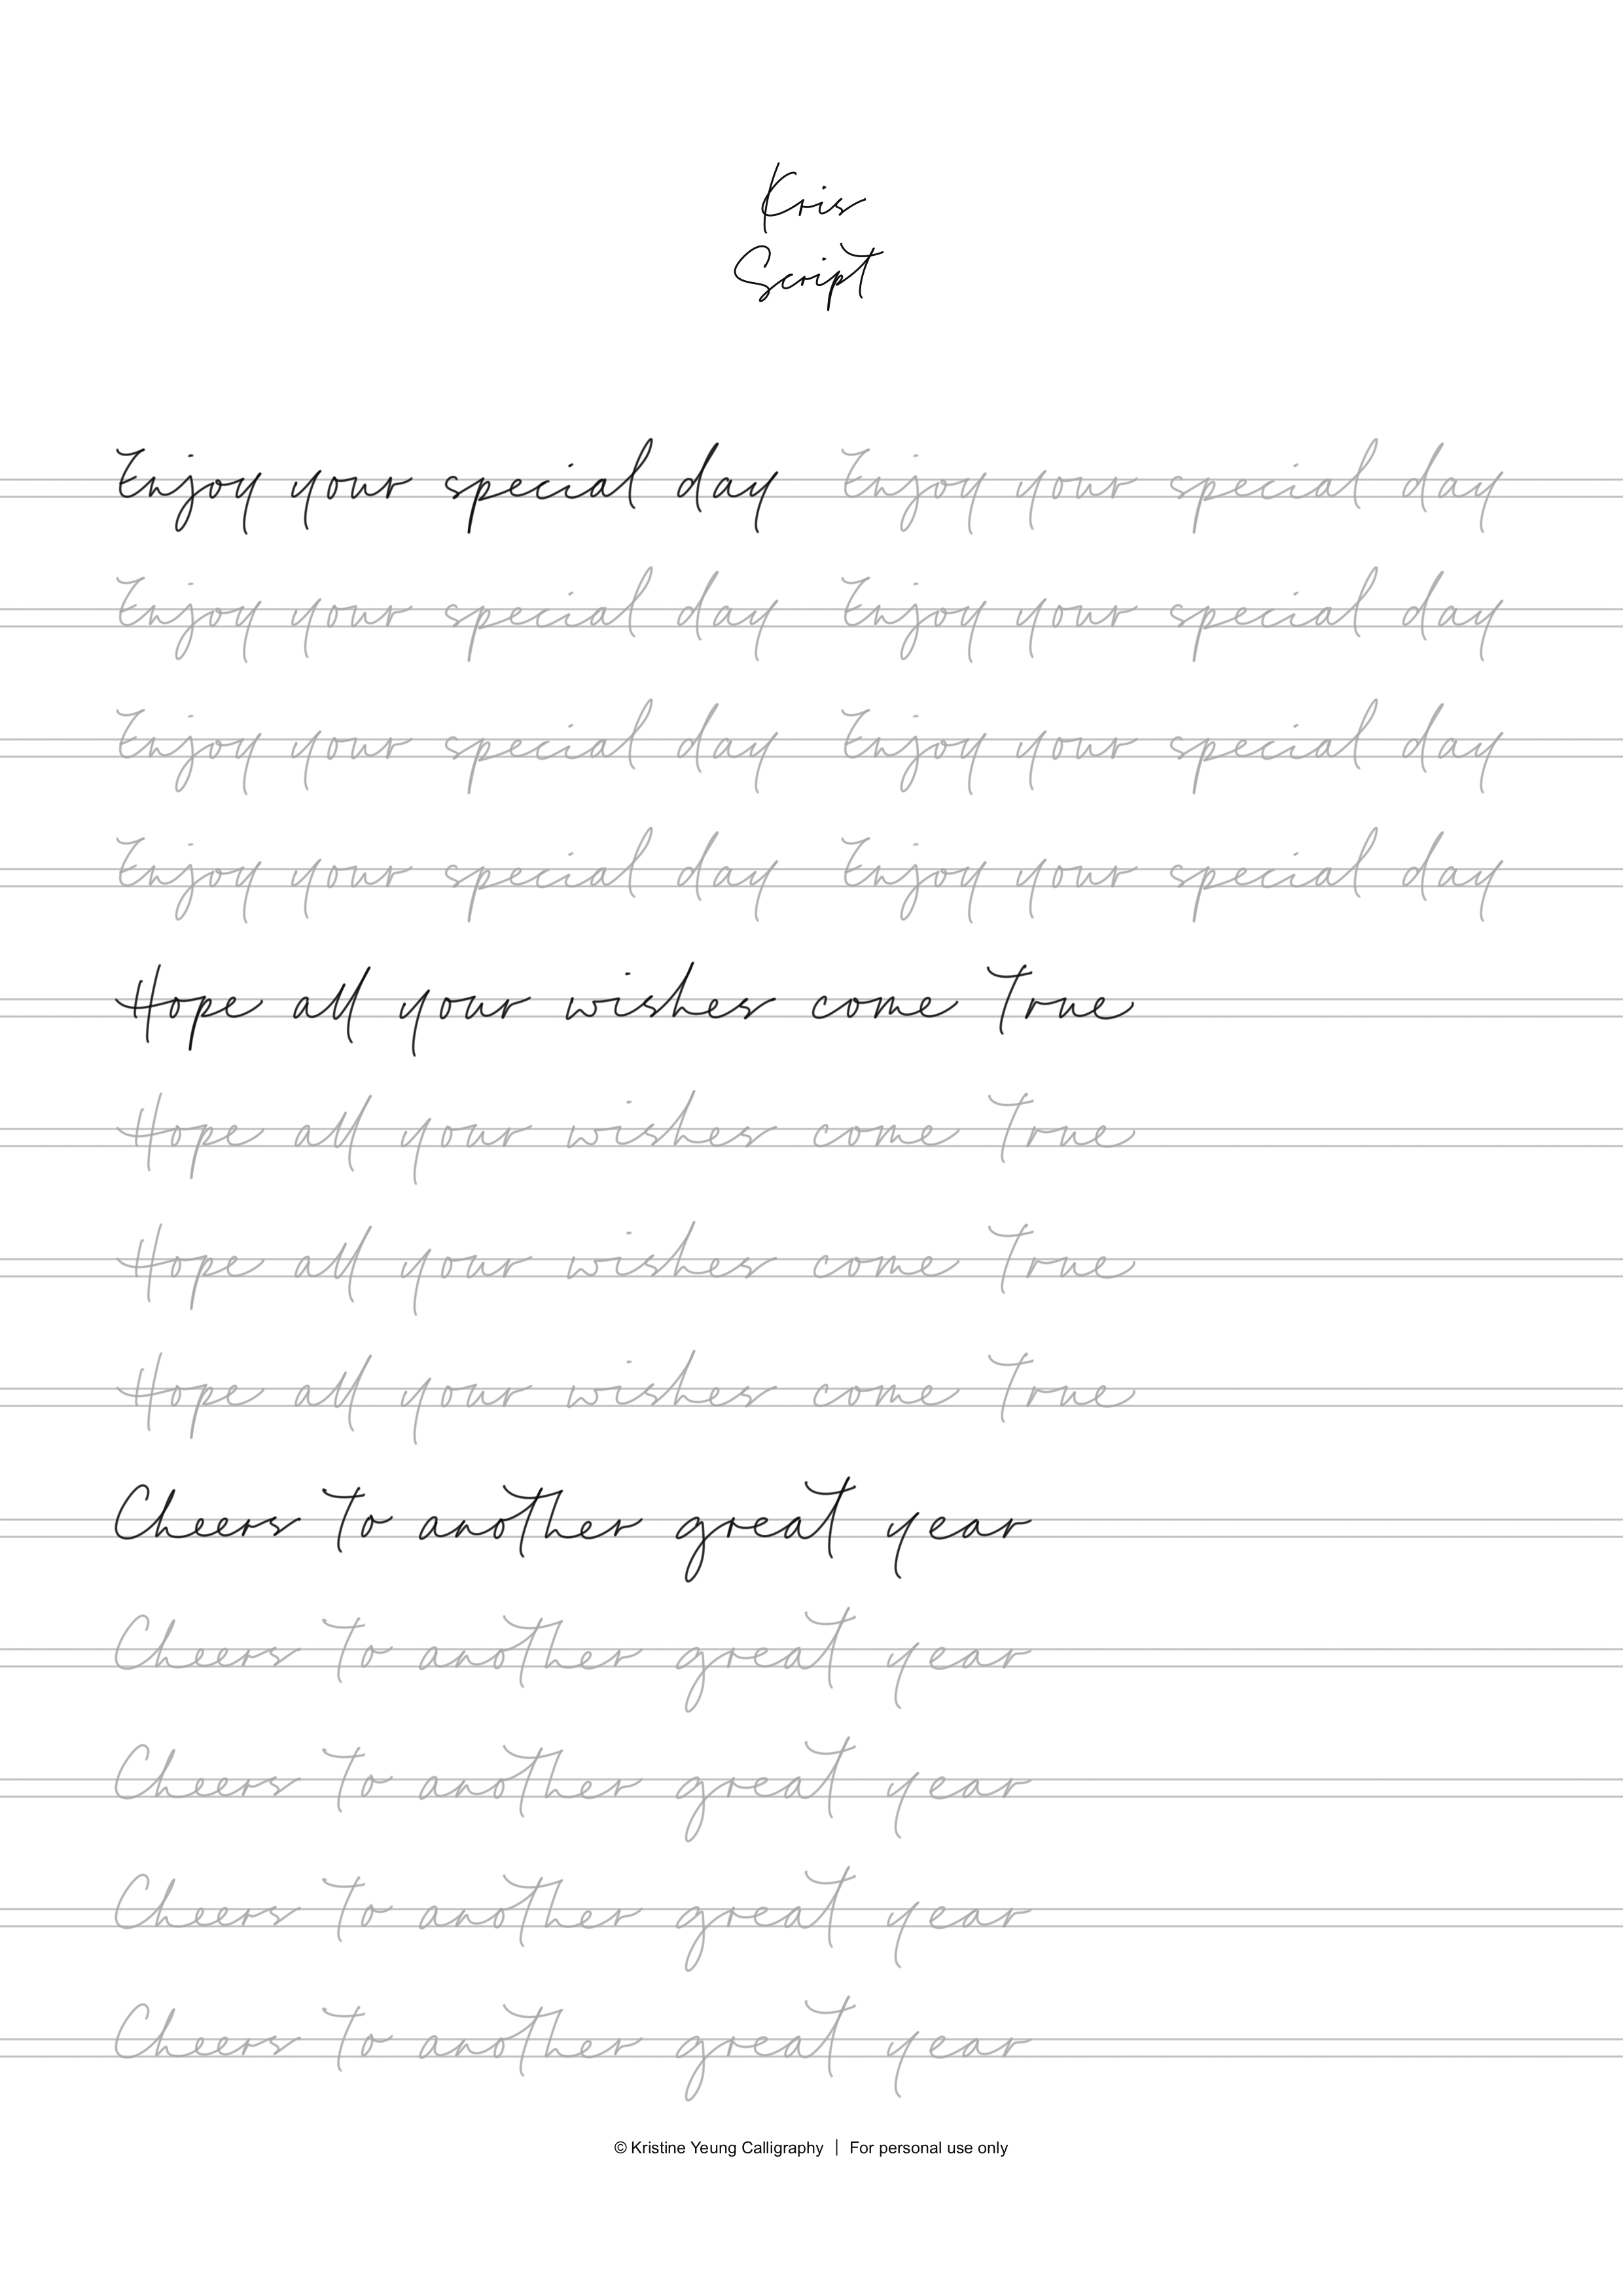 Kris
Script
Enjoy your special day Enjoy your special day
Enjoy your special day Enjoy your special day
Enjoy your special day Enjoy your special day
Enjoy your special day Enjoy your special day
Hope all your wishes come true
Hope all your wishes come true
Hope all your wishes come true
Hope all your wishes come true
Cheers to another great year
Cheers to another great year
Cheers to another great year
Cheers to another great year
Cheers to another great year
© Kristine Yeung Calligraphy | For personal use only